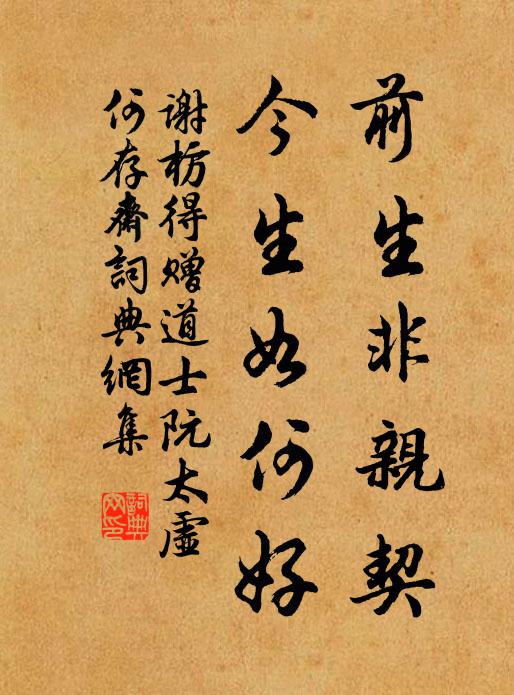 前生非親契
今生如何好
謝枋得贈道士阮太虛
何存齋詞典網集
詞典網印